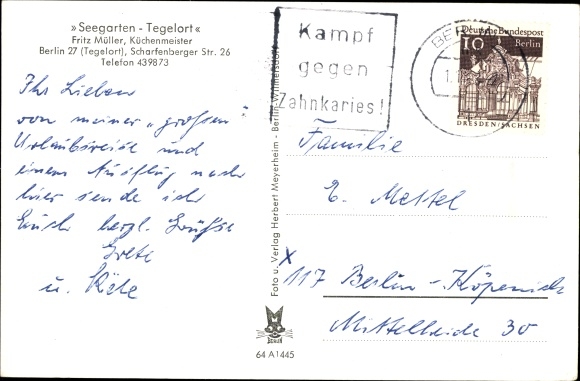 »Seegarten - Tegelort«
Fritz Müller, Küchenmeister
Berlin 27 (Tegelort), Scharfenberger Str. 26
Telefon 439873
Ihr Lieben
von meiner „großen"
Urlaubsreise und
einem Ausflug nach
hier sende ich
Euch herzl. Grüße
Grete
u. Käte
Foto u. Verlag Herbert Meyerheim - Berlin-Wilmersdorf
BERLIN
64 A1445
Kampf
gegen
Zahnkaries!
BER
Deutsche Bundespost
10 Berlin
DRESDEN/SACHSEN
Familie
E. Mettel
x 117 Berlin-Köpenick
Mittelheide 30